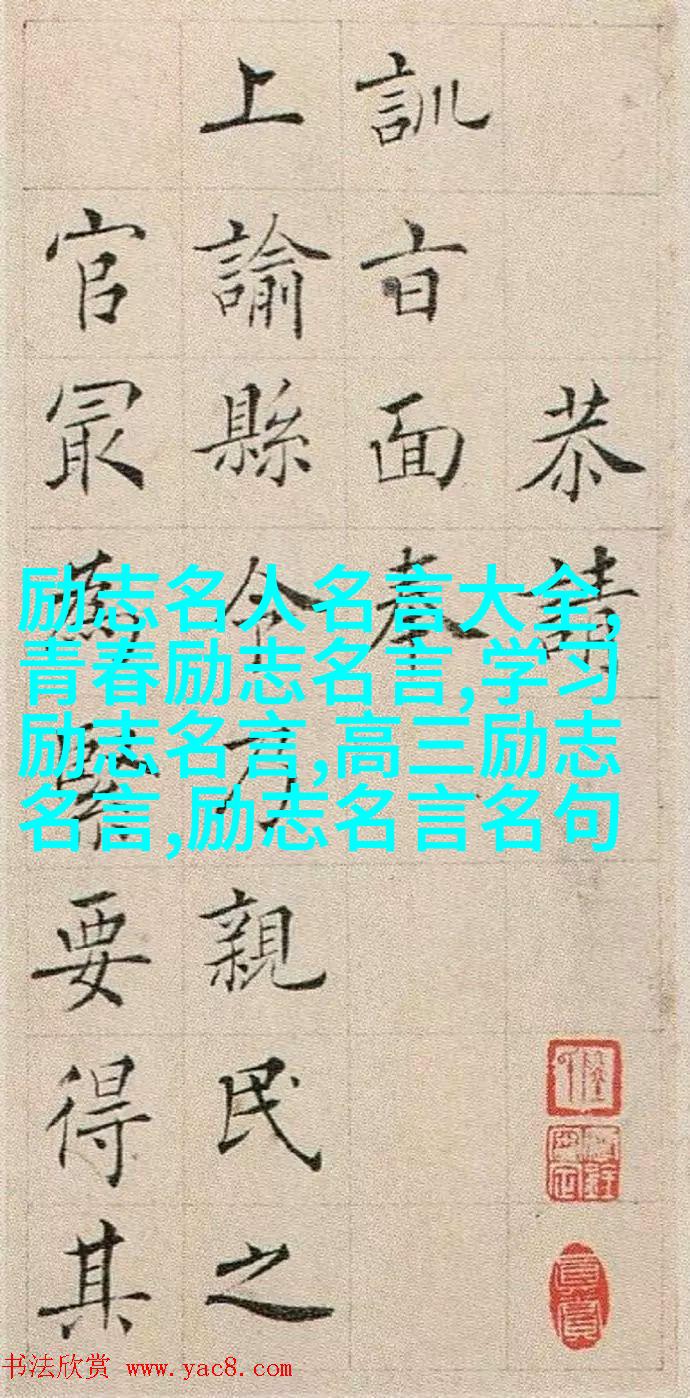 恭請
訓㫖面奉
上諭縣令乃親民之
官冣為緊要得其
励志名人名言大全,
青春励志名言,学习
励志名言,高三励志
名言,励志名言名句
书法欣赏 www.yac8.com